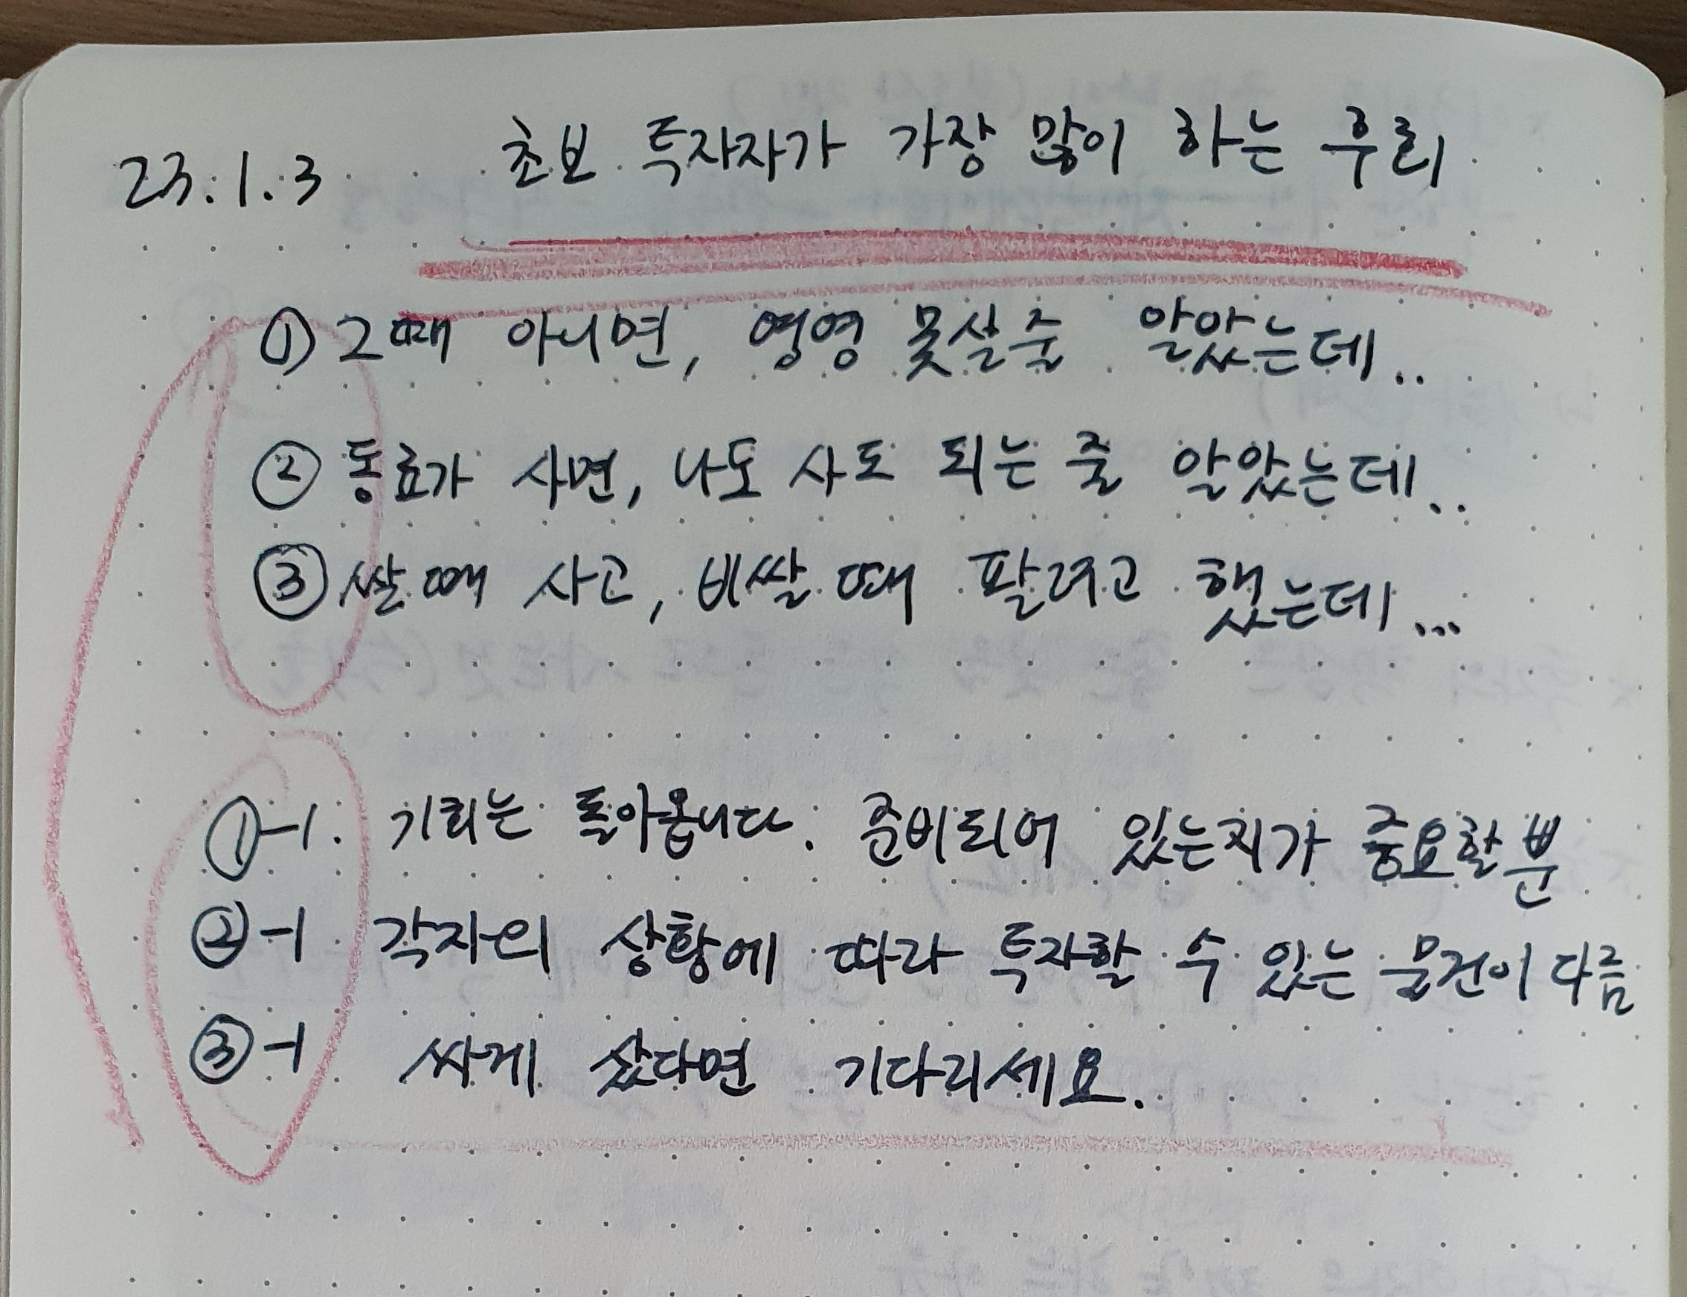 23.1.3 초보 투자자가 가장 많이 하는 후회
① 그때 아니면, 영영 못살줄 알았는데..
② 동료가 사면, 나도 사도 되는 줄 알았는데..
③ 쌀때 사고, 비쌀때 팔려고 했는데...
①-1. 기회는 돌아옵니다. 준비되어 있는지가 중요할 뿐
②-1 각자의 상황에 따라 투자할 수 있는 물건이 다름
③-1 싸게 샀다면 기다리세요.